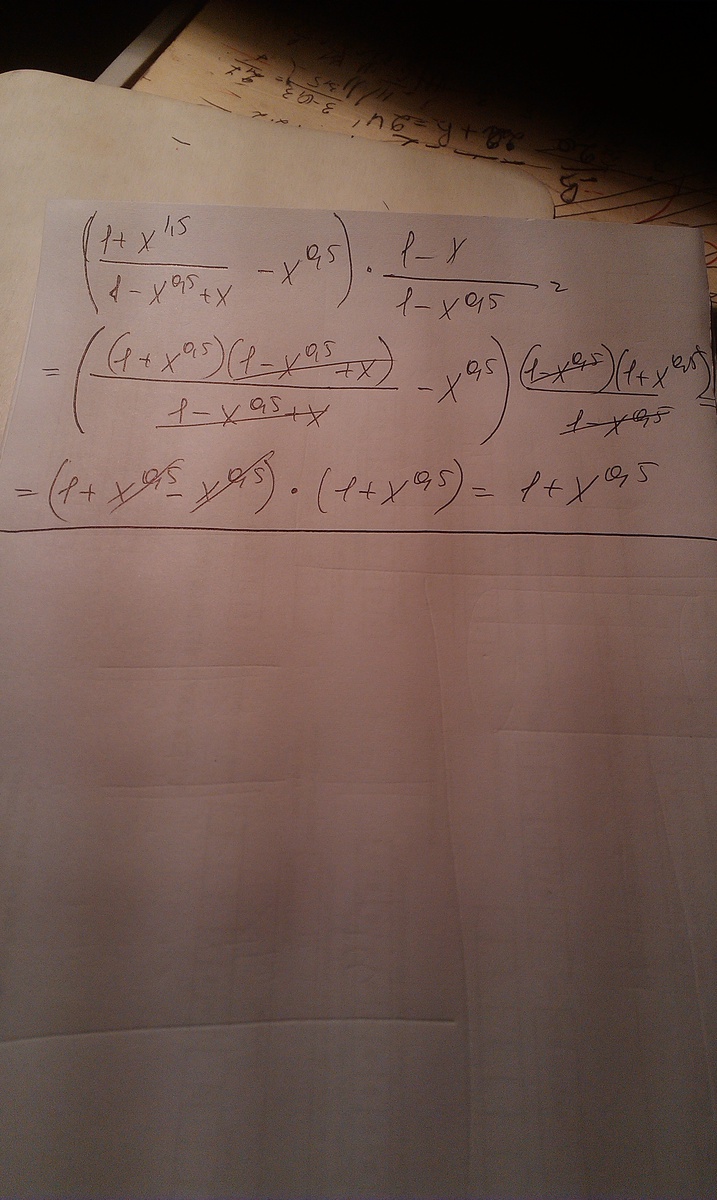 (1+x^1,5 / 1-x^0,5+x - x^0,5) · 1-x / 1-x^0,5 =
= ((1+x^0,5)(1-x^0,5+x) / 1-x^0,5+x - x^0,5) (1-x^0,5)(1+x^0,5) / 1-x^0,5 =
= (1+x^0,5 - x^0,5) · (1+x^0,5) = 1+x^0,5